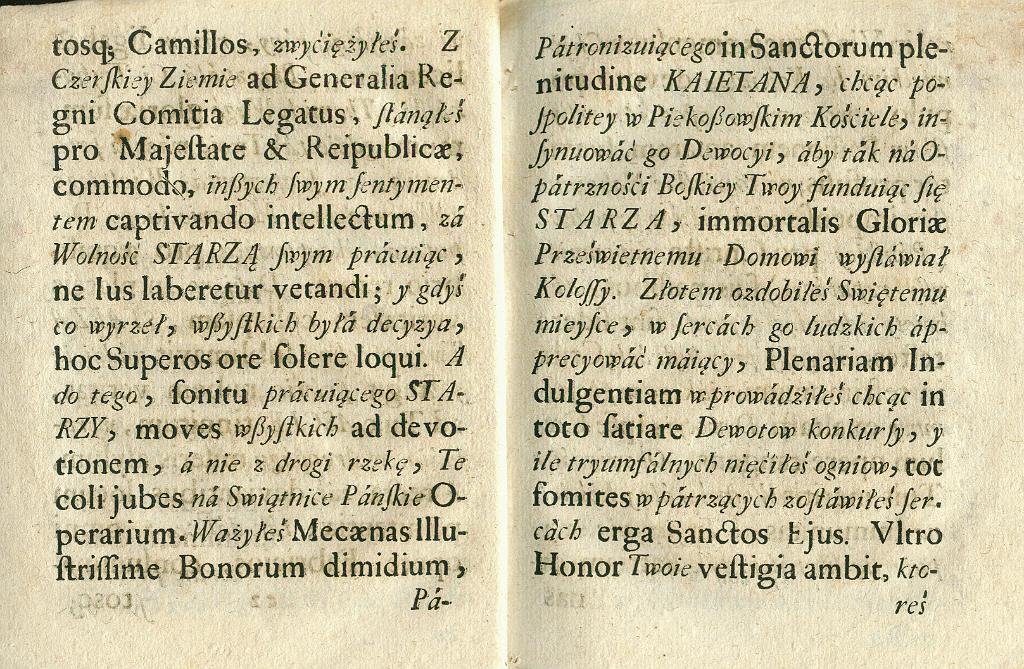 tosq; Camillos, zwyćiężyłeś. Z
Czerſkiey Ziemie ad Generalia Re-
gni Comitia Legatus, ſtánąłeś
pro Majeſtate & Reipublicæ,
commodo, inßych ſwym ſentymen-
tem captivando intellectum, zá
Wolność STARZĄ ſwym prácuiąc,
ne Ius laberetur vetandi; y gdyś
co wyrzeł, wßyſtkich byłá decyzya,
hoc Superos ore ſolere loqui. A
do tego, ſonitu prácuiącego STA-
RZY, moves wßyſtkich ad devo-
tionem, á nie z drogi rzekę, Te
coli jubes ná Swiątnice Páńſkie O-
perarium. Ważyłeś Mecænas Illu-
ſtriſſime Bonorum dimidium,
Pá-
Pátronizuiącego in Sanctorum ple-
nitudine KAIETANA, chcąc po-
ſpolitey w Piekoßowſkim Kościele, in-
ſynuowáć go Dewocyi, áby ták ná O-
pátrznośći Boſkiey Twoy funduiąc ſię
STARZA, immortalis Gloriæ
Prześwietnemu Domowi wyſtáwiał
Koloſſy. Złotem ozdobiłeś Swiętemu
mieyſce, w ſercách go ludzkich áp-
precyowáć máiący, Plenariam In-
dulgentiam wprowádźiłeś chcąc in
toto ſatiare Dewotow konkurſy, y
ile tryumfálnych nięćiłeś ogniow, tot
fomites w pátrzących zoſtáwiłeś ſer-
cách erga Sanctos Ejus. Vltro
Honor Twoie veſtigia ambit, kto-
reś